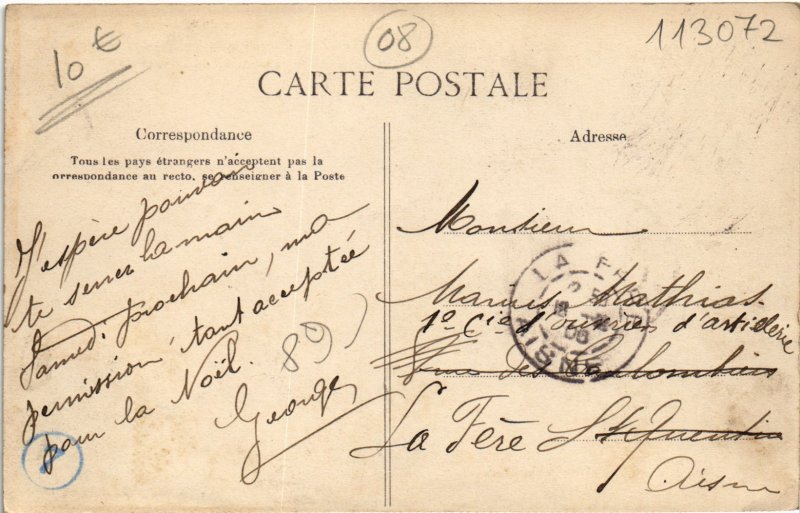 10 €
08
113072
CARTE POSTALE
Correspondance
Tous les pays étrangers n'acceptent pas la
orrespondance au recto, se renseigner à la Poste
Adresse
J'espère pouvoir
te serrer la main
Samedi prochain, ma
permission étant acceptée
pour la Noël.
89
George
Monsieur
Mathias
1º Cie d'ouvriers d'artillerie
rue des
La Fère St Quentin
Aisne
LA FÈRE
AISNE